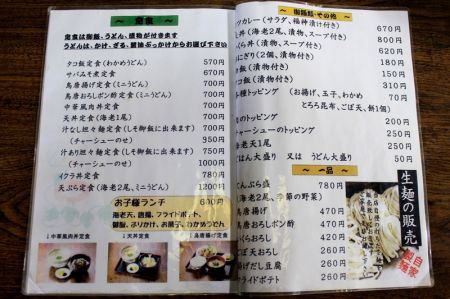 ～ 定食 ～
定食は御飯、うどん、漬物が付きます
うどんは、かけ、ざる、醤油ぶっかけからお選び下さい
タコ飯定食(わかめうどん) 570円
サバみそ煮定食 700円
鳥唐揚げ定食(ミニうどん) 700円
鳥唐おろしポン酢定食(ミニうどん) 700円
中華風肉丼定食 700円
天丼定食(海老1尾) 700円
汁なし担々麺定食(しそ御飯に出来ます) 700円
(チャーシューのせ) 950円
汁あり担々麺定食(しそ御飯に出来ます) 750円
(チャーシューのせ) 1000円
イクラ丼定食 780円
天ぷら定食(海老2尾、ミニうどん) 1200円
お子様ランチ 600円
海老天、唐揚、フライドポテト、
御飯、ふりかけ、お菓子、わかめうどん
↓中華風肉丼定食
↓天丼定食
↓鳥唐揚げ定食
～ 御飯類・その他 ～
ツカレー(サラダ、福神漬け付き) 670円
丼(海老2尾、漬物、スープ付き) 680円
丼(漬物、スープ付き) 580円
にぎり(2個、漬物) 180円
飯(漬物) 180円
飯(漬物) 310円
種トッピング (お揚げ、玉子、わかめ 70円
とろろ昆布、ごぼ天、餅1個)
のトッピング 200円
チャーシューのトッピング 250円
海老天1尾 250円
ごはん大盛り 又は うどん大盛り 50円
～ 一品 ～
天ぷら盛 780円
(海老2尾、季節の野菜)
鳥唐揚げ 460円
鳥唐おろしポン酢 460円
くおろし 260円
ごぼ天おろし 320円
揚げだし豆腐 260円
フライドポテト 260円
生麺の販売
自家製麺